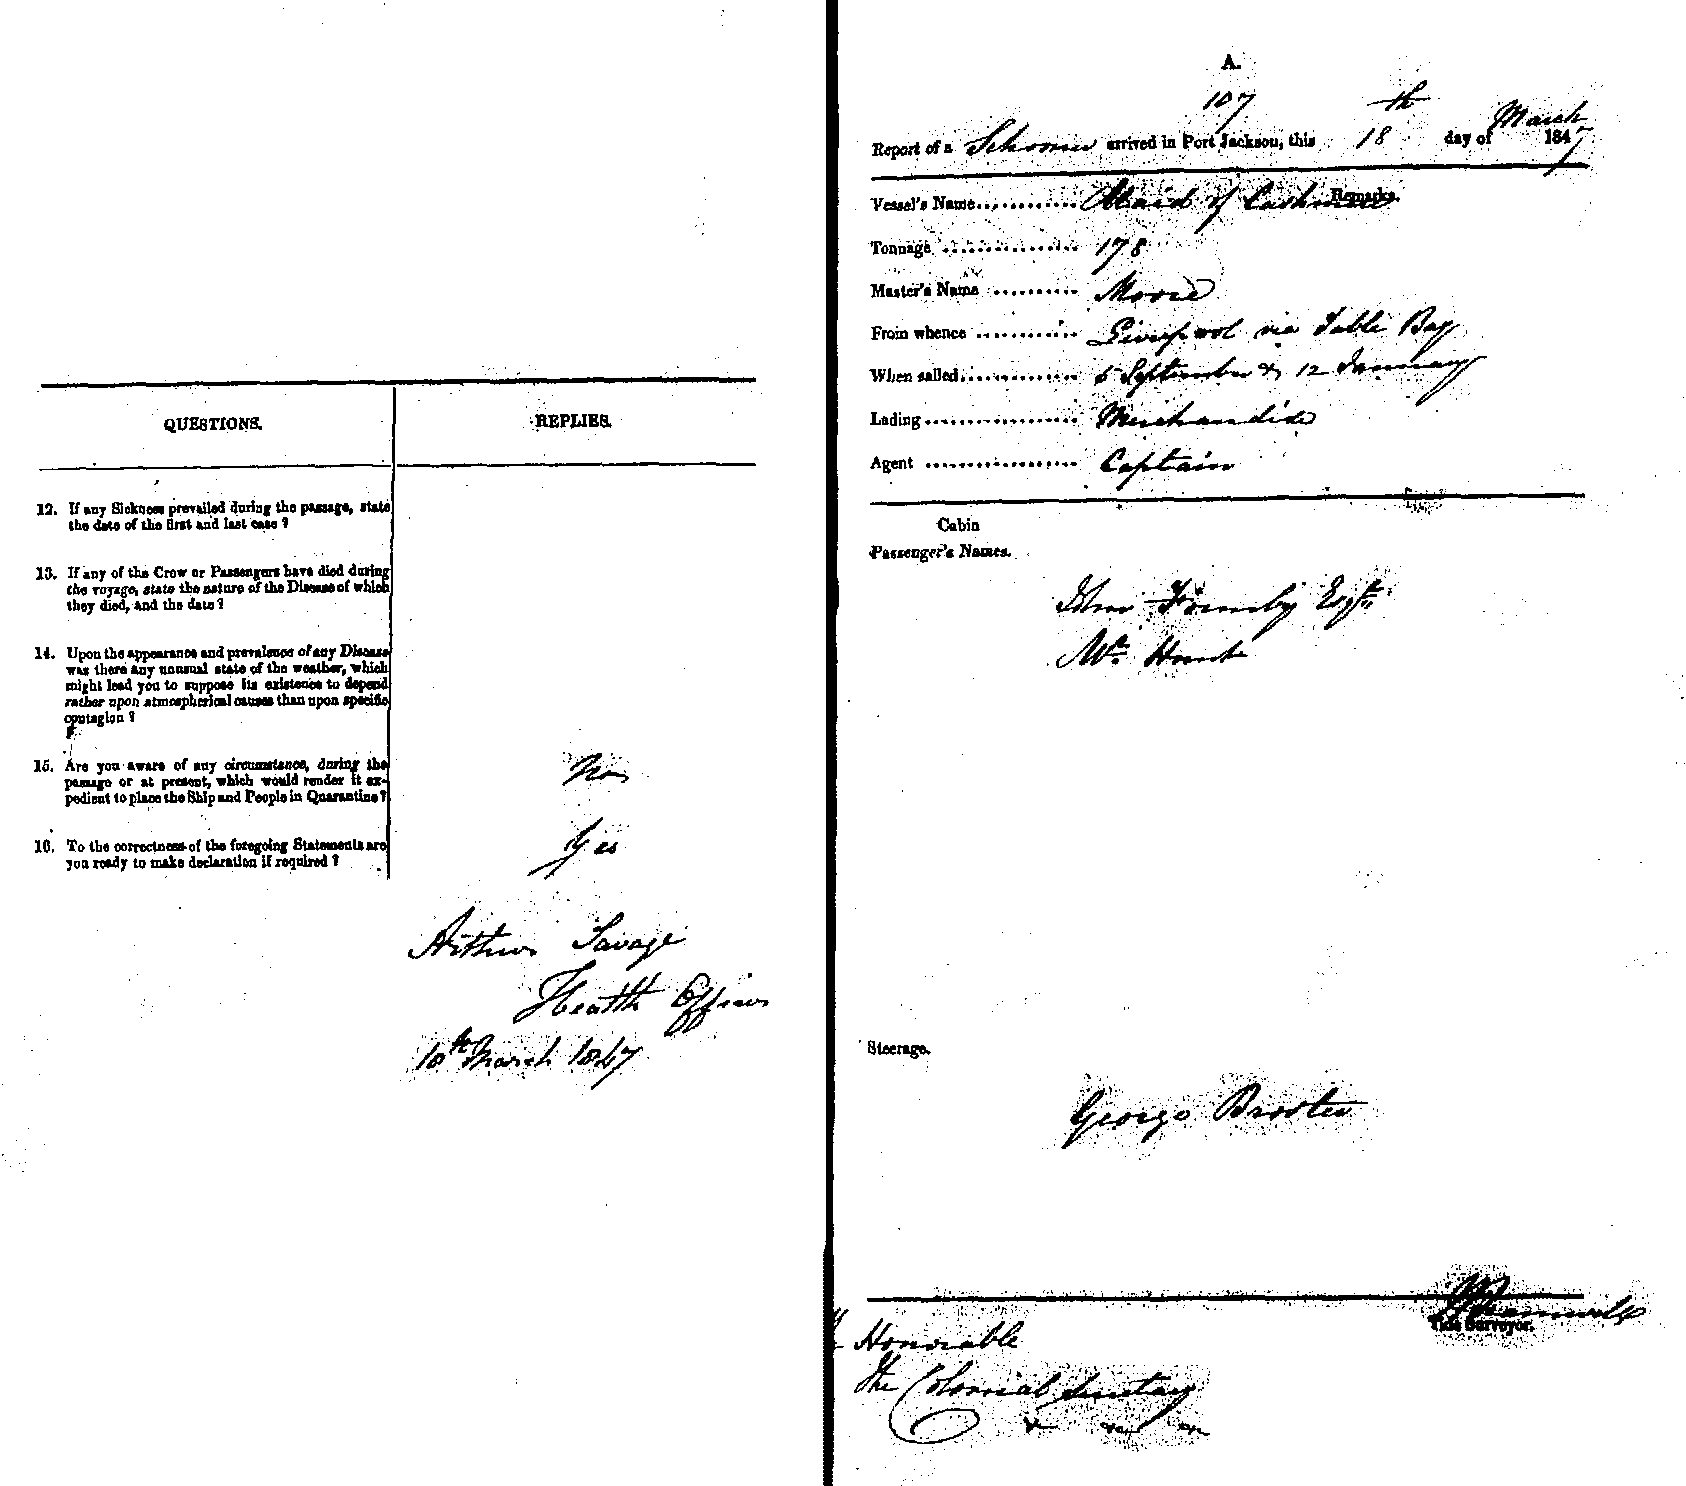 QUESTIONS.
REPLIES.
12. If any Sickness prevailed during the passage, state
the date of the first and last case ?
13. If any of the Crew or Passengers have died during
the voyage, state the nature of the Disease of which
they died, and the date ?
14. Upon the appearance and prevalence of any Disease
was there any unusual state of the weather, which
might lead you to suppose its existence to depend
rather upon atmospherical causes than upon specific
contagion ?
15. Are you aware of any circumstance, during the
passage or at present, which would render it ex-
pedient to place the Ship and People in Quarantine ?
No
16. To the correctness of the foregoing Statements are
you ready to make declaration if required ?
Yes
Arthur Savage
Health Officer
18th March 1847
A.
107
Report of a Schooner arrived in Port Jackson, this 18th day of March 1847
Remarks.
Vessel's Name Maid of Cashmere
Tonnage 178
Master's Name Moore
From whence Liverpool via Table Bay
When sailed 5 September & 12 January
Lading Merchandise
Agent Captain
Cabin
Passenger's Names.
Formby Esqre
Mr. Hunt
Steerage.
George Broster
Tide Surveyor.
Honorable
The Colonial Secretary
&c &c &c